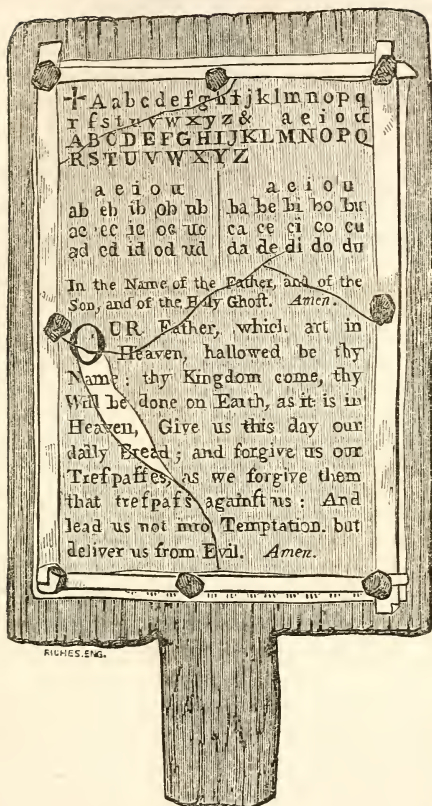 ✝Aabcdefghijklmnopq
rſstuvwxyz& aeiou
ABCDEFGHIJKLMNOPQ
RSTUVWXYZ
a e i o u a e i o u
ab eb ib ob ub ba be bi bo bu
ac ec ic oc uc ca ce ci co cu
ad ed id od ud da de di do du
In the Name of the Father, and of the
Son, and of the Holy Ghoſt. Amen.
OUR Father, which art in
Heaven, hallowed be thy
Name; thy Kingdom come, thy
Will be done on Earth, as it is in
Heaven, Give us this day our
daily Bread; and forgive us our
Treſpaſſes, as we forgive them
that treſpaſs againſt us: And
lead us not into Temptation. but
deliver us from Evil. Amen.
RICHES. ENG.